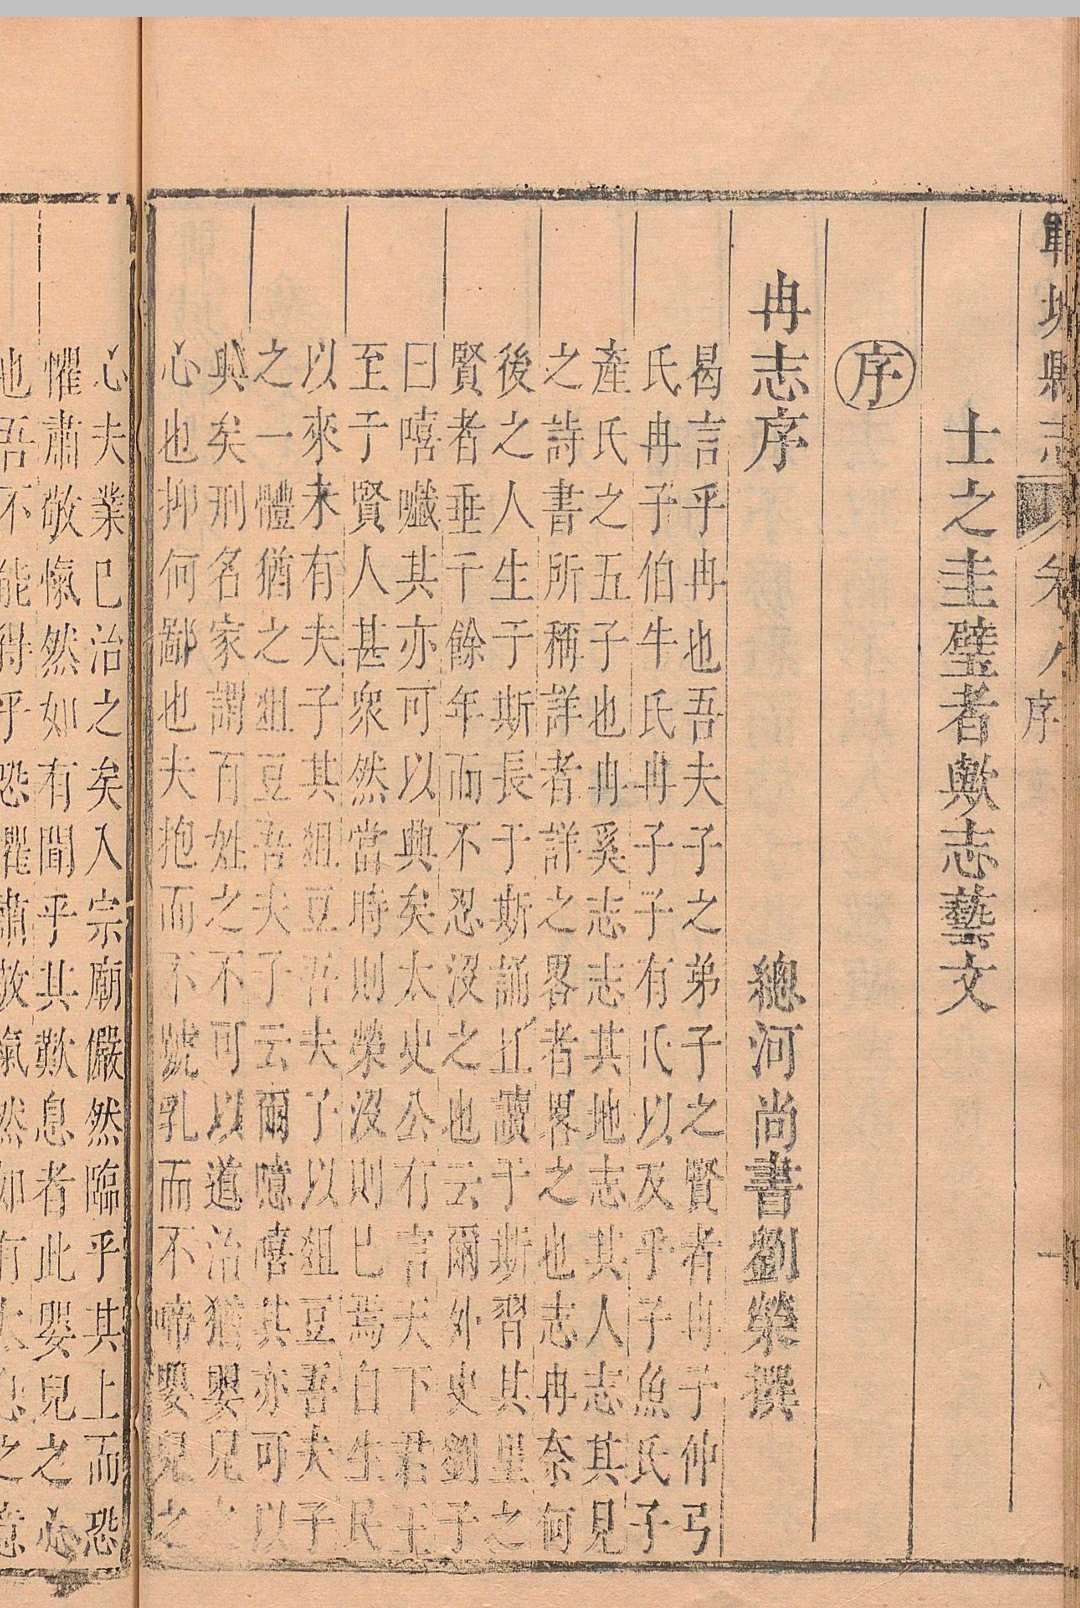 鄆城縣志 卷八 序 一
士之圭璧者歟志藝文
序
冉志序 總河尚書劉榮撰
曷言乎冉也吾夫子之弟子之賢者冉子仲弓
氏冉子伯牛氏冉子子有氏以及乎子魚氏子
產氏之五子也冉奚志志其地志其人志其見
之詩書所稱詳者詳之畧者畧之也志冉奈何
後之人生于斯長于斯誦丘讀于斯習其里之
賢者垂千餘年而不忍沒之也云爾外史劉子
曰嘻嚱其亦可以與矣太史公有言天下君王
至于賢人甚衆然當時則榮沒則已焉自生民
以來未有夫子其俎豆吾夫子以俎豆吾夫子
之一體猶之俎豆吾夫子云爾噫嘻其亦可以
與矣刑名家謂百姓之不可以道治猶嬰兒之
心也抑何鄙也夫抱而不號乳而不啼嬰兒之
心夫業已治之矣入宗廟儼然臨乎其上而恐
懼肅敬愾然如有聞乎其歎息者此嬰兒之心
也吾不能得乎恐懼肅敬氣然如有太息之意